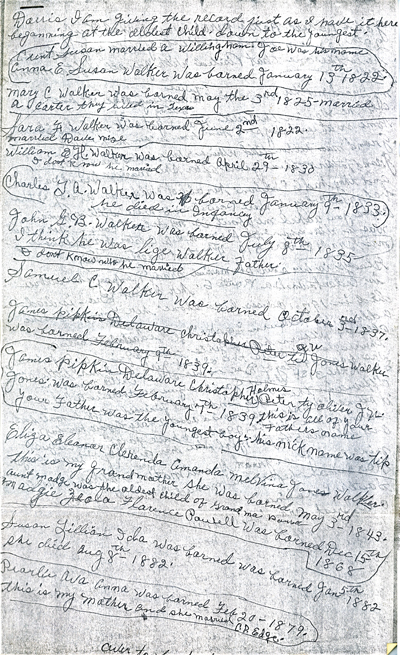 Davis I am giving the record just as I have it here
beganning at the oldest child down to the youngest.
Aunt Susan married a Willingham Joe was his name
Anna E. Susan Walker was borned January 13th 1822.
Mary C Walker was borned may the 3rd 1825 - married
a Carter they lived in Texas
Sara F. Walker was borned June 2nd 1822.
married
William D. H. Walker was borned April 29th - 1830
I dont know he married
Charles T. A. Walker was borned January 9th - 1833.
he died in Infancy
John G. B. Walker was borned July 8th - 1835
I think he was lige Walker father.
I dont Know who he married
Samuel C Walker was borned October 3rd - 1837.
James pipkin Delaware Christopher Jones Walker
was borned February 9th 1839.
James Pipkin Delaware Christopher Holmes Peter ty oliver
Jones was borned February 9th 1839 this is all of your Fathers name
your Father was the youngest boy his nick name was Pip
Eliza Eleanor Clerenda Amanda Melvina Jones Walker
this is my grandmother she was borned May 3rd 1843.
aunt madge was the oldest child of Grand ma
Madgie Florence Powell was borned Dec 15th
1868
Susan Lillian Icba was borned was borned Jan 5th 1882
she died aug 8th - 1882.
Pearlie Ava Anna was borned Feb 20 - 1879.
this is my mother and she married
over to